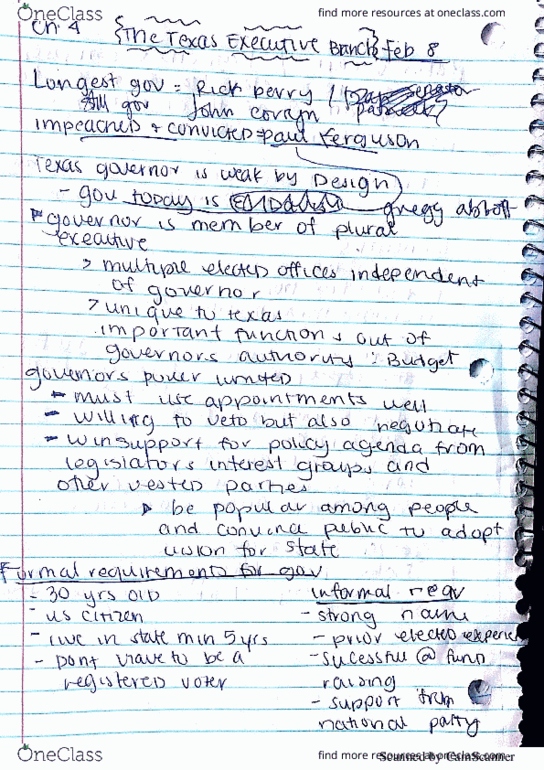 OneClass
find more resources at oneclass.com
Ch 4 {The Texas Executive Branch} Feb 8
Longest gov = Rick Perry /
Still gov John Corayn
impeached & convicted = Paul Ferguson
Texas governor is weak by Design
- gov today is gregg abbott
governor is member of plural
executive
> multiple elected offices independent
of governor
> unique to texas
important functions out of
governors authority : Budget
governors power limited
- must use appointments well
- willing to veto but also negotiate
- win support for policy agenda from
legislators interest groups and
other vested parties
be popular among people
and convince public to adopt
vision for state
Formal requirements for gov
- 30 yrs old
- us citizen
- live in state min 5 yrs
- Dont have to be a
registered voter
informal req
- strong name
- prior elected experience
- sucessful @ fund
raising
- support from
national party
OneClass
find more resources at oneclass.com
Scanned by CamScanner